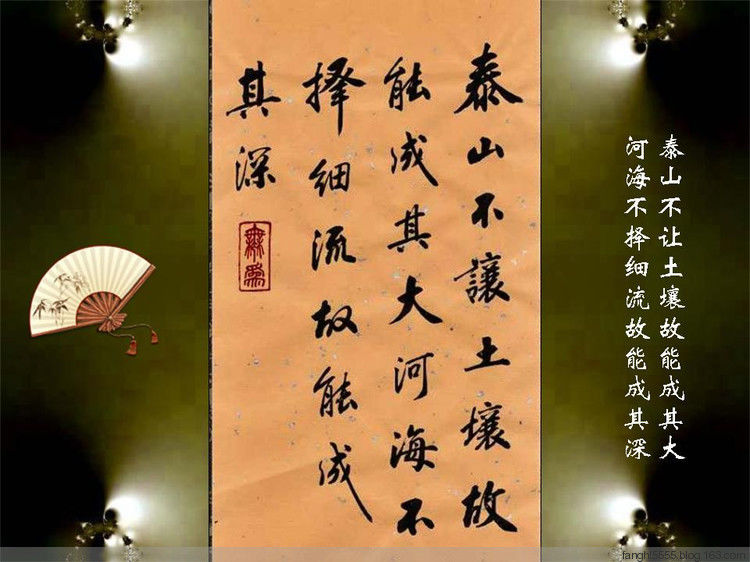 泰山不让土壤故能成其大
河海不择细流故能成其深
泰山不讓土壤故
能成其大河海不
擇細流故能成
其深
fanghl5555.blog.163.com